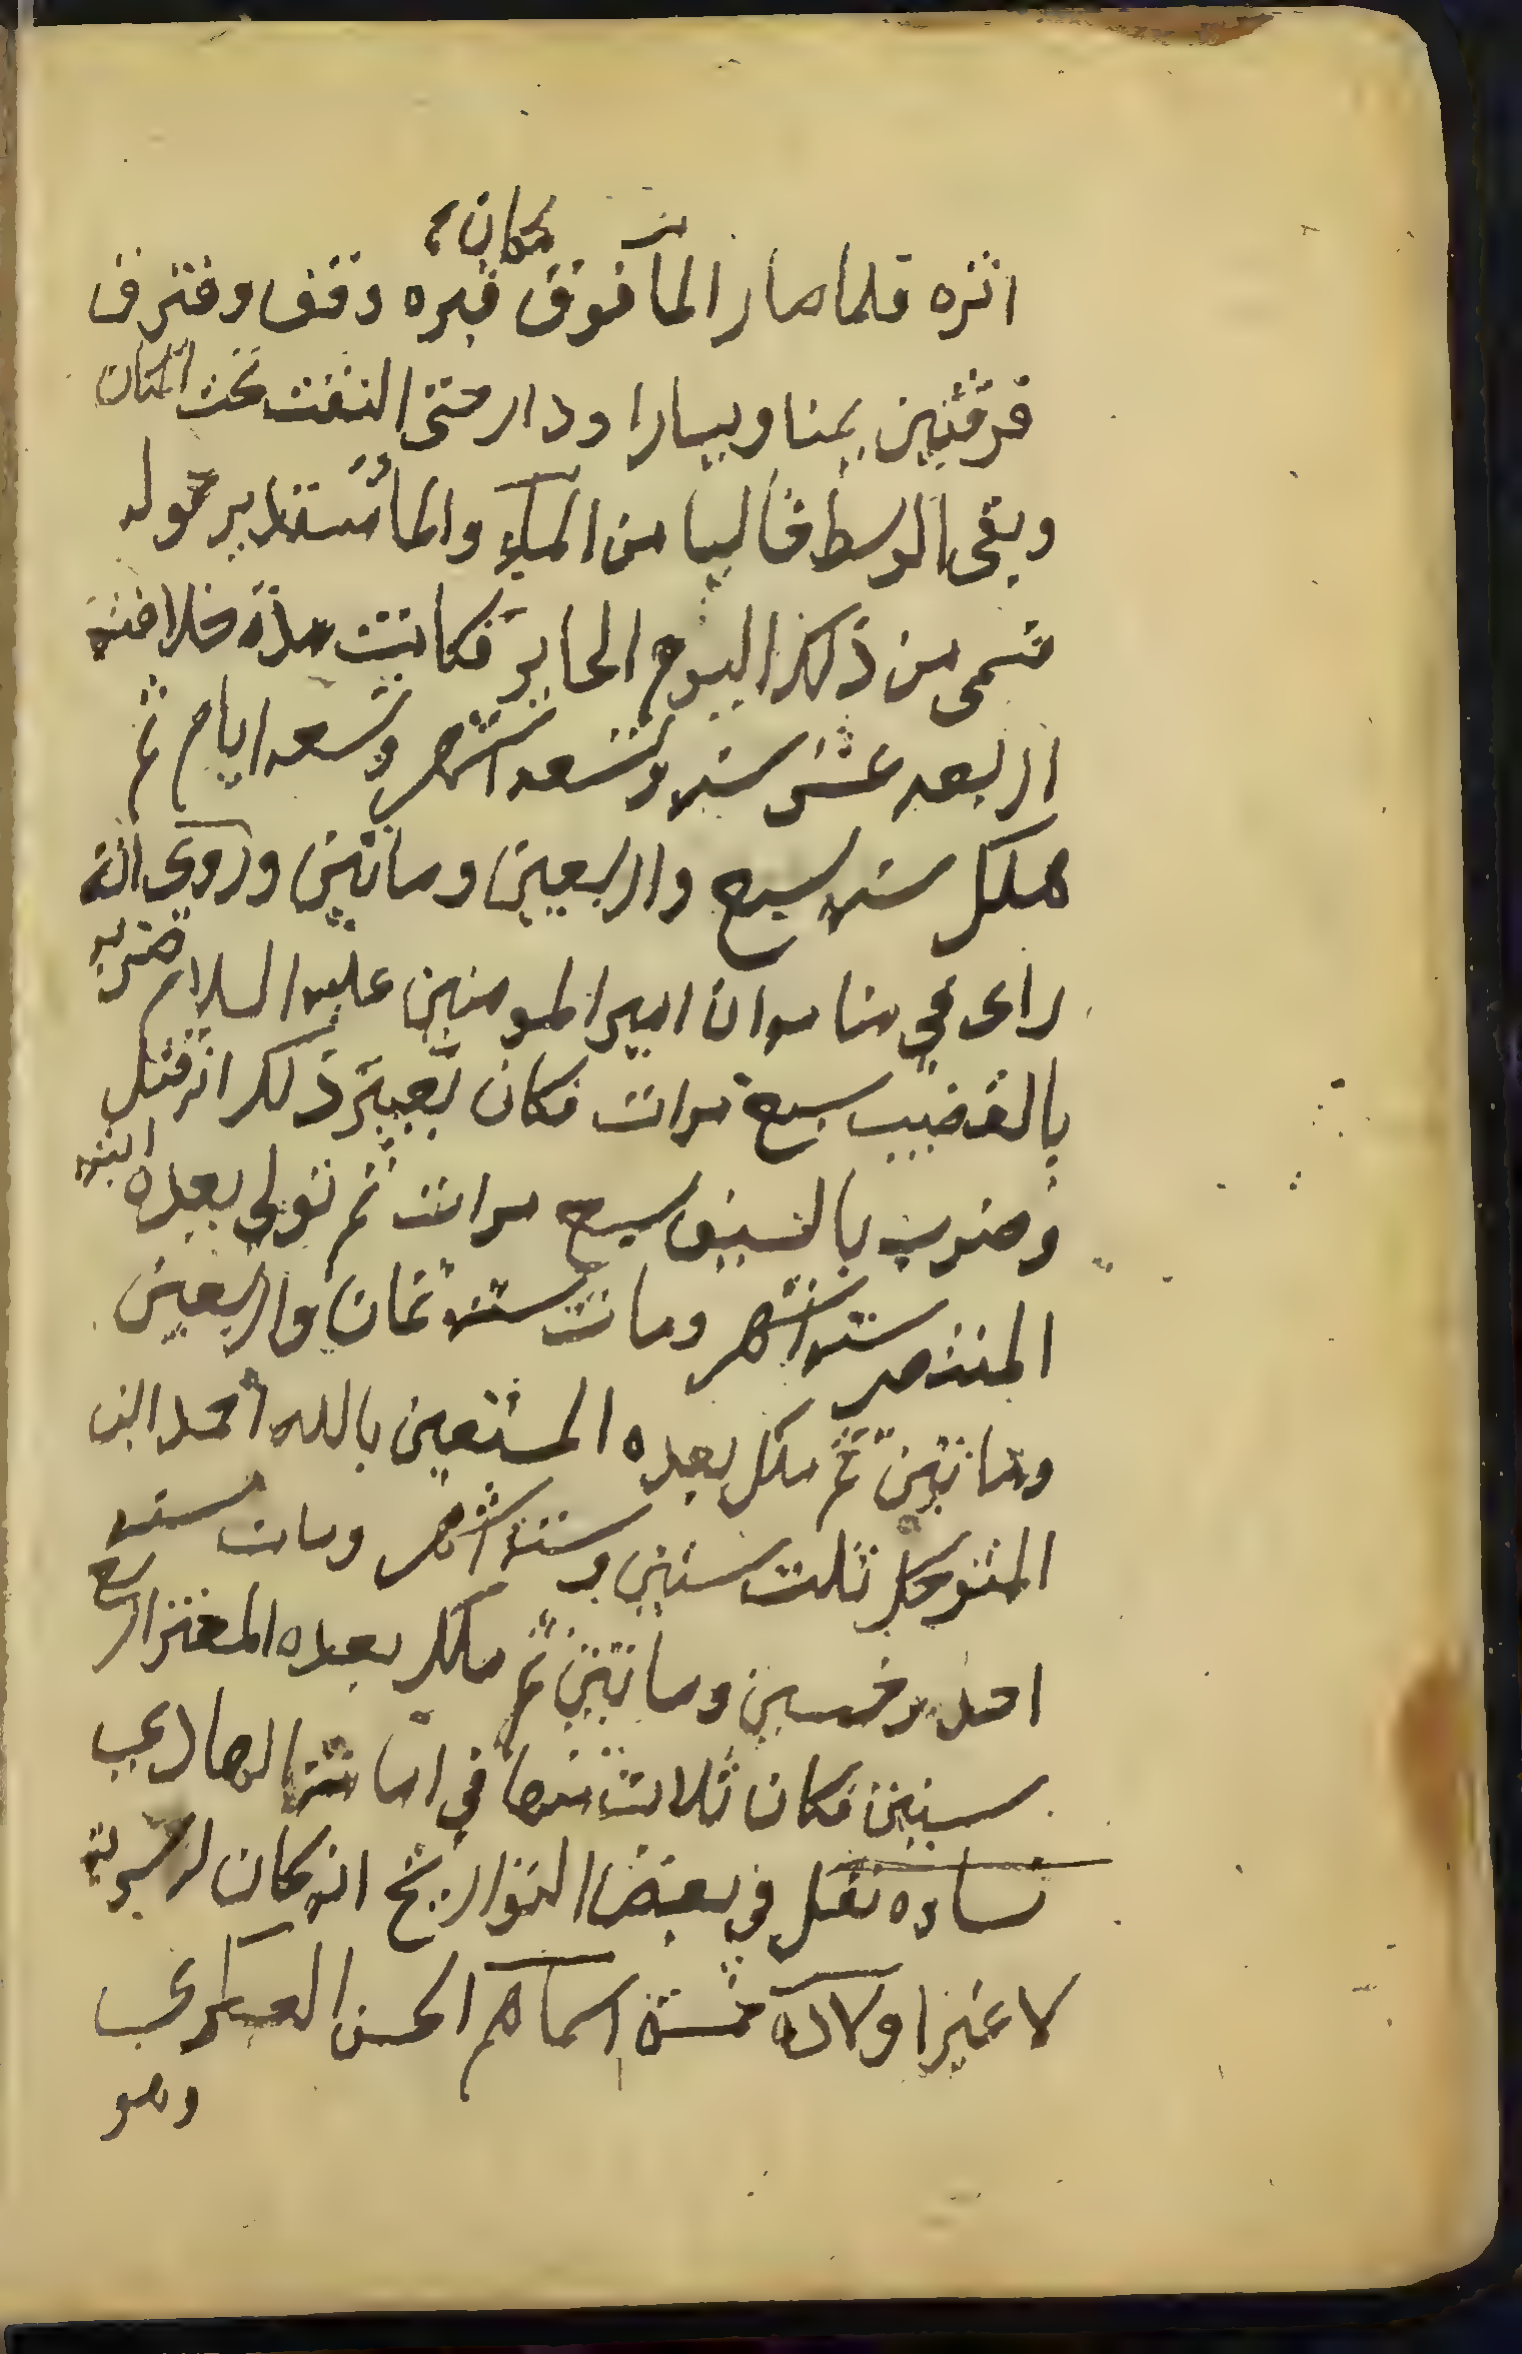 مكان
اثره فلما صار المآ فوق قبره وقف وفترق
فرقتين يمنا ويسارا ودار حتى التفت تحت المكان
وبقى الوسط خاليا من المآء والمآ مستدير حوله
فسمى من ذلك اليوم الحاير فكانت مدة خلافته
اربعه عشر سنه وتسعه اشهر وتسعه ايام ثم
هلك سنه سبع واربعين وماتين وروى انه
راى في منامه ان امير المومنين عليه السلام ضربه
بالقضيب سبع مرات فكان تعبير ذلك انه قتل
وضرب بالسيف سبع مرات ثم تولى بعده ابنه
المنتصر سته اشهر ومات سنه ثمان واربعين
وماتين ثم ملك بعده المستعين بالله احمد ابن
المتوكل ثلث سنين وسته اشهر ومات سنه
احد وخمسين وماتين ثم ملك بعده المعتز اربع
سنين فكان ثلاث منها في امامته الهادي
نساوه نقل في بعض التواريخ انه كان له سرية
لا غير اولاده خمسة اسماهم الحسن العسكري
وهو